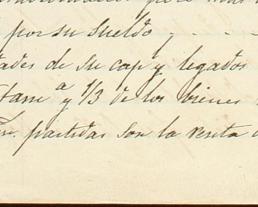 por su sueldo y
ades de su cap.n y legados
Fam.a y 1/3 de los bienes
partidas son la renta